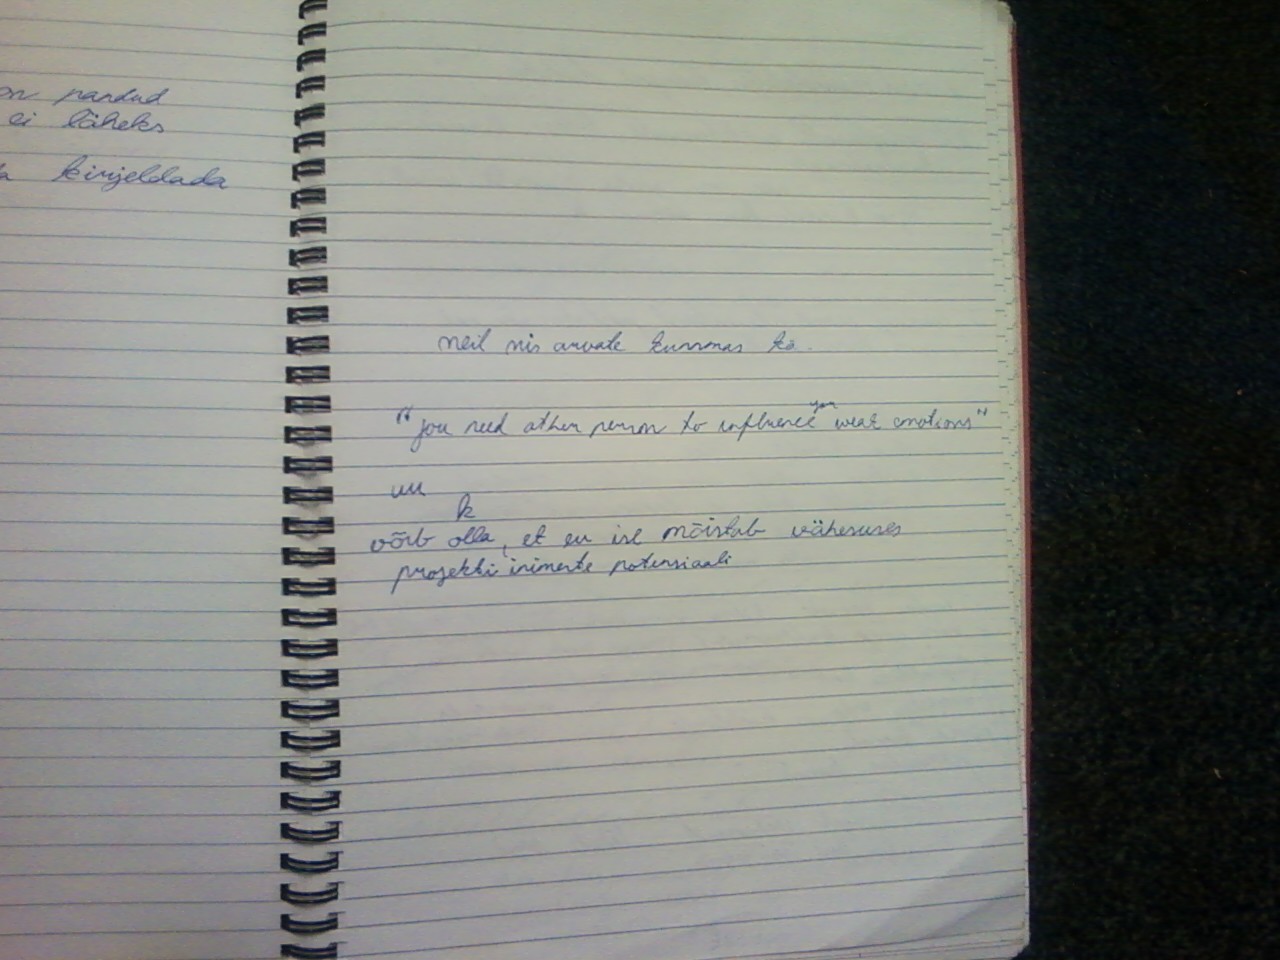 pandud
ei läheks
kirjeldada
neil mis arvate kummas ka.
you
"you need other person to influence weak emotions"
uu
k
võib olla, et eu ise mõistab vähesuses
projekti inimeste potensiaali